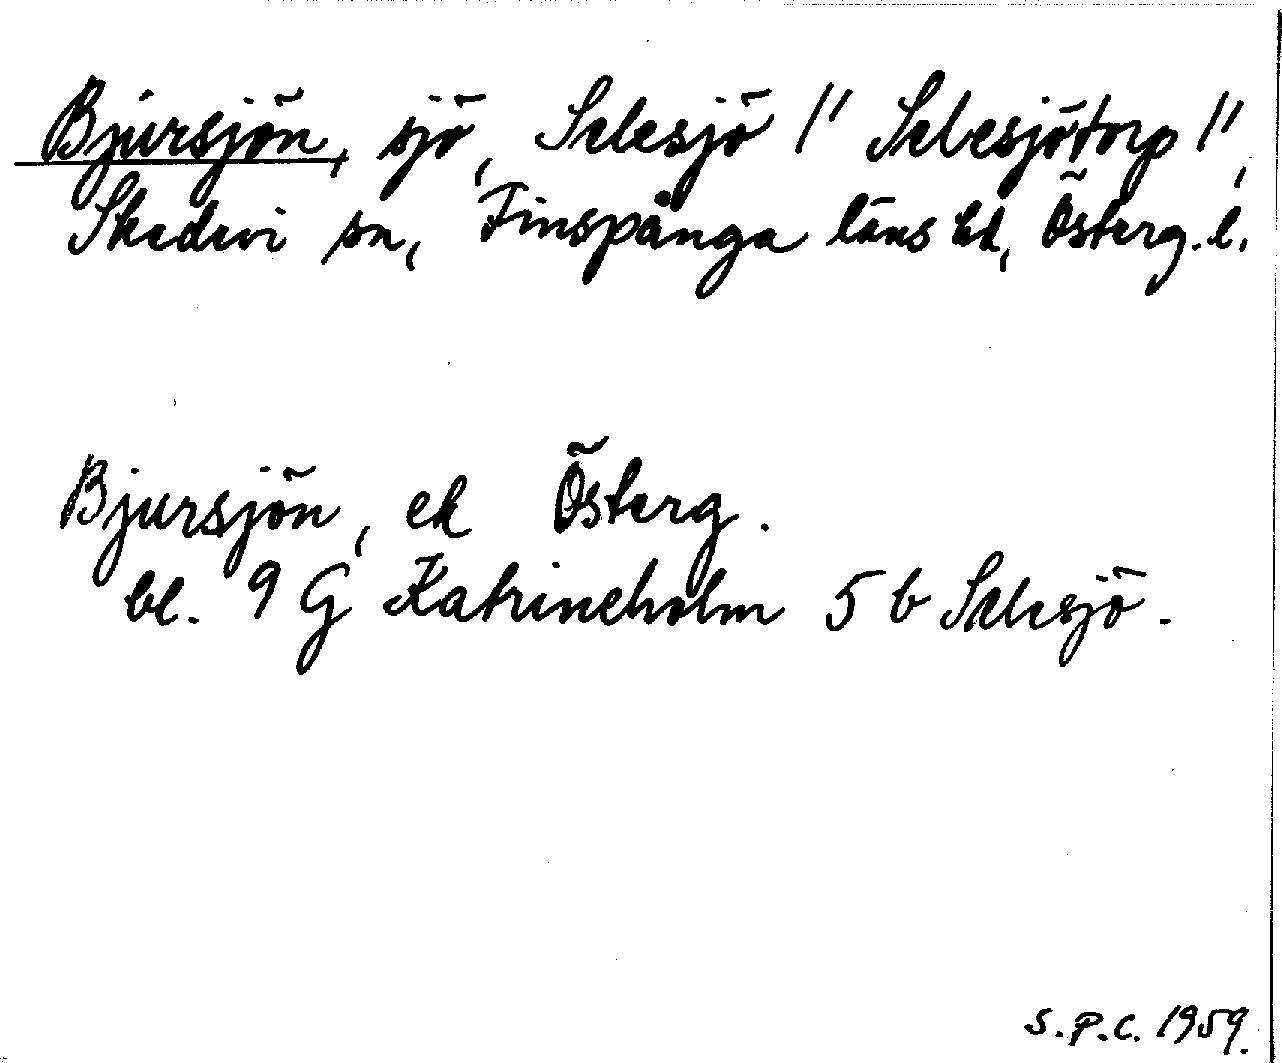 Bjursjön, sjö, Selesjö /" Selesjötorp /",
Skedevi sn, Finspånga läns hd, Österg. l.
Bjursjön, ek Österg.
bl. 9 G Katrineholm 5 b Selesjö.
S.P.C. 1959.